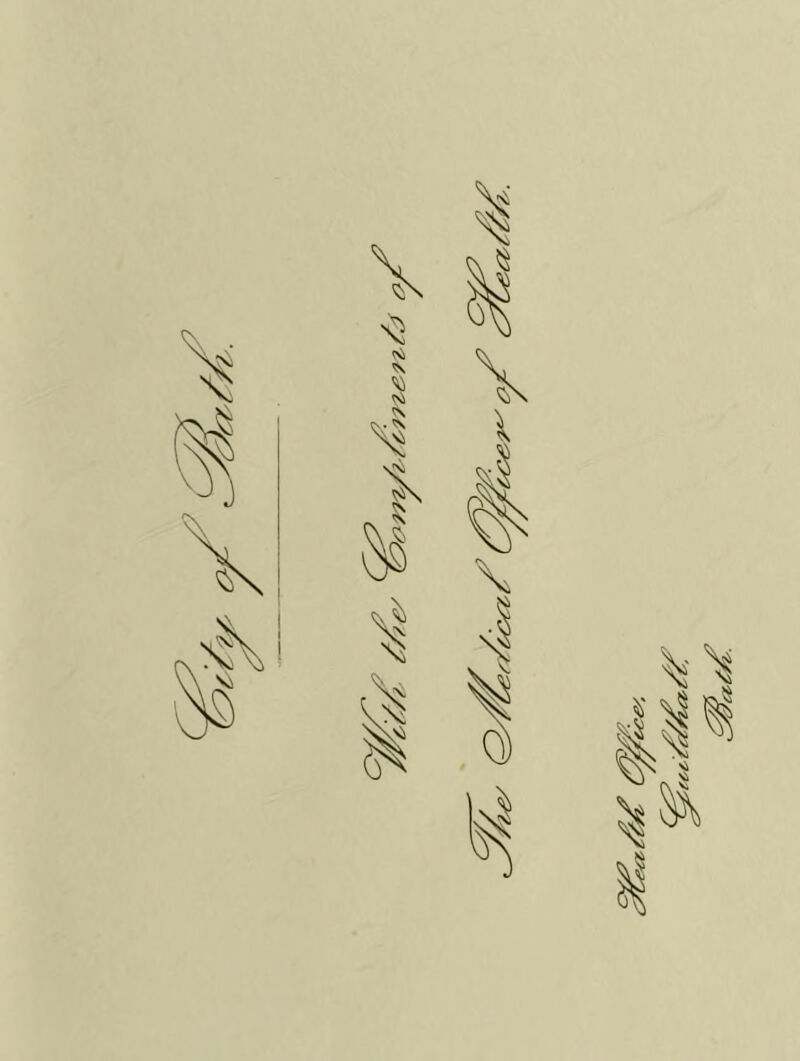 City of Bath.
With the Compliments of
The Medical Officer of Health.
Health Office,
Guildhall,
Bath.